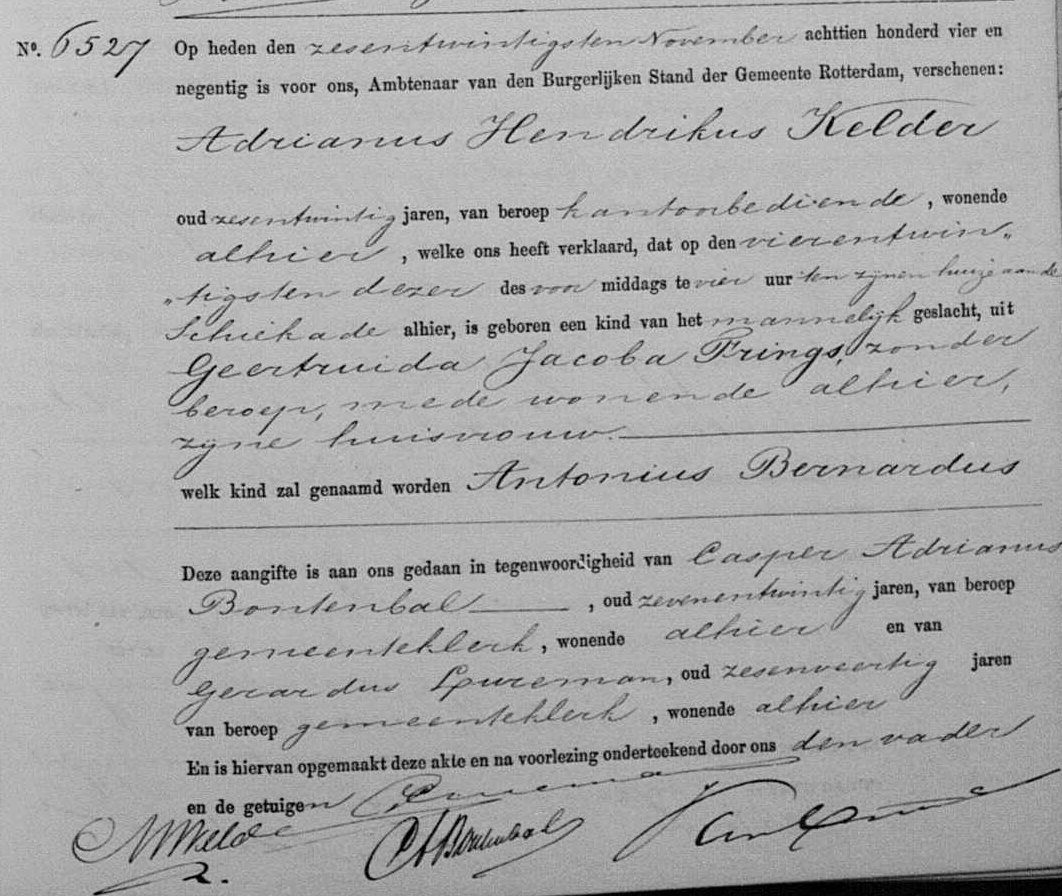 Nº. 6527 Op heden den zesentwintigsten November achttien honderd vier en
negentig is voor ons, Ambtenaar van den Burgerlijken Stand der Gemeente Rotterdam, verschenen:
Adrianus Hendrikus Kelder
oud zesentwintig jaren, van beroep kantoorbediende, wonende
alhier, welke ons heeft verklaard, dat op den vierentwin„
„tigsten dezer des voor middags te vier uur ten zijnen huize aan de
Schiekade alhier, is geboren een kind van het mannelijk geslacht, uit
Geertruida Jacoba Frings, zonder
beroep, mede wonende alhier,
zijne huisvrouw.
welk kind zal genaamd worden Antonius Bernardus
Deze aangifte is aan ons gedaan in tegenwoordigheid van Casper Adrianus
Bontenbal, oud zevenentwintig jaren, van beroep
gemeenteklerk, wonende alhier en van
Gerardus Lureman, oud zesenveertig jaren
van beroep gemeenteklerk, wonende alhier
En is hiervan opgemaakt deze akte en na voorlezing onderteekend door ons den vader
en de getuigen
AHKelder
CABontenbal